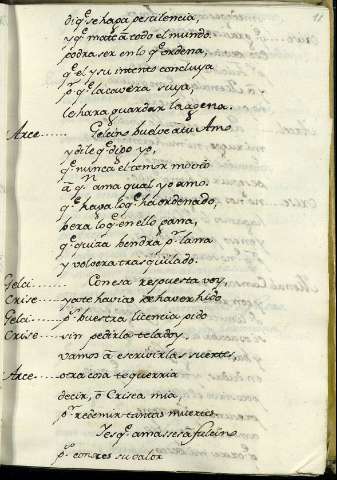 11
diq.e se haga pestilencia,
y q.e mate à todo el mundo
podra ser en lo q.e ordena,
q.e el y su intento concluya
p.r q.e la cavera suya,
le hara guardar la agena.
Arce...... Gelcino buelve à tu Amo
y dile q.e digo yo,
q.e nunca el temor movio
à q.n ama qual yo amo.
q.e haga lo q.e ha ordenado,
vera lo q.e en ello gana,
q.e quiza vendra p.r lana
y volvera trasquilado.
Gelci...... Con esa respuesta voy,
Crise...... ya te havias de haver hido
Gelci...... p.r vuestra licencia pido
Crise...... sin pedirla te la doy,
vamos à escrivir las suertes,
Arce...... otra cosa te querria
decir, ò Crisea mia,
p.r redemir tantas muertes.
Y es q.e amasses à fulcino
p.s con res su valor